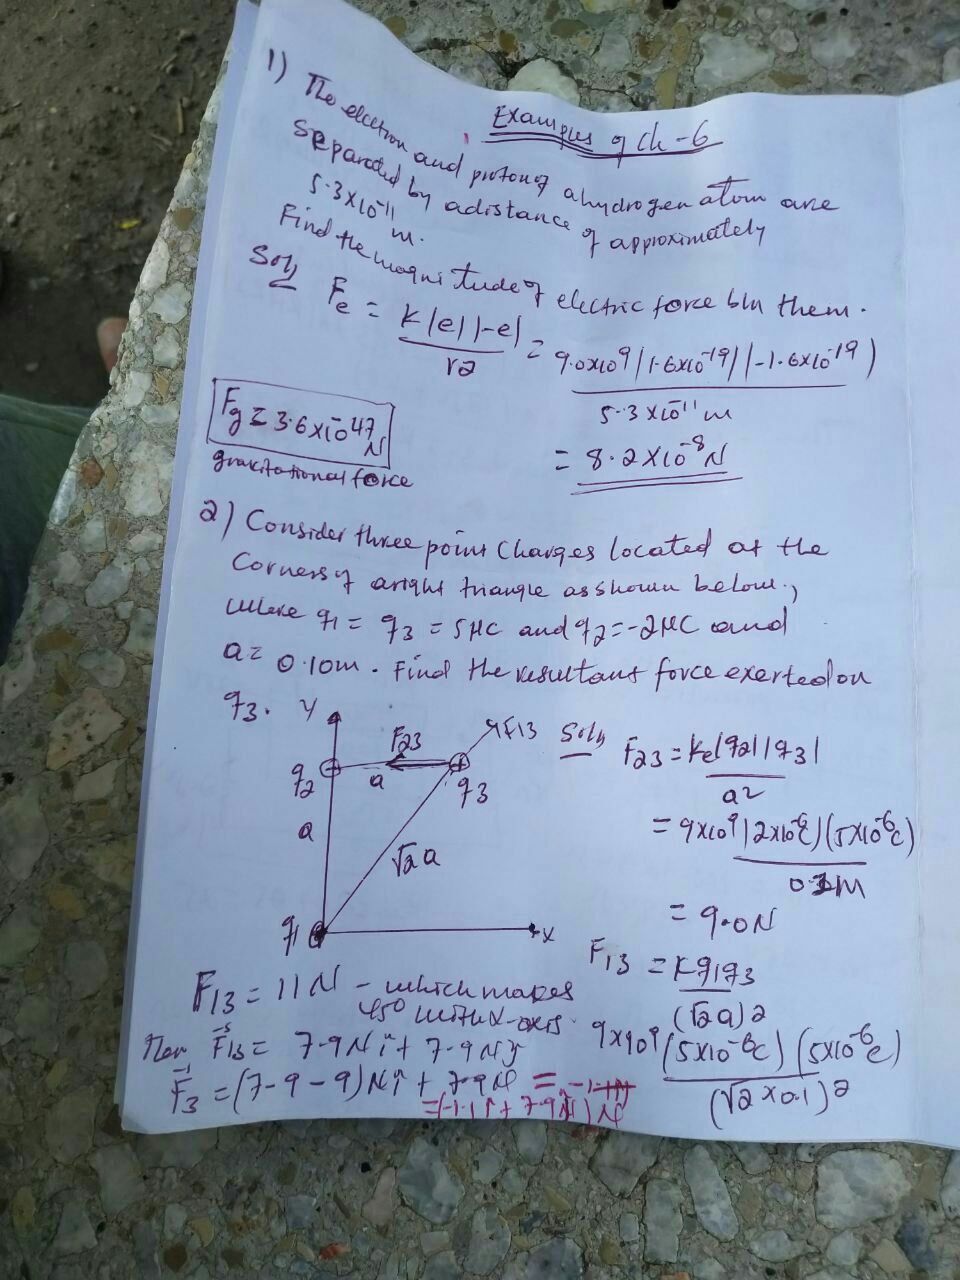 Examples of Ch-6
1) The electron and proton of a hydrogen atom are
separated by a distance of approximately
5.3x10^-11 m.
Find the magnitude of electric force b/n them.
Soln
Fe = K|e||-e| / r2 = 9.0x10^9 |1.6x10^-19| |-1.6x10^-19) / 5.3x10^-11 m
Fg = 3.6x10^-47 N
gravitational force
= 8.2x10^-8 N
2) Consider three point charges located at the
Corners of a right triangle as shown below,
where q1 = q3 = 5μC and q2=-2μC and
a= 0.10m. Find the resultant force exerted on
q3.
Y
F23
F13
q2
a
q3
a
√2a
q1
X
Soln
F23 = Ke|q2||q3| / a2
= 9x10^9 |2x10^-6C) (5x10^-6C) / 0.1m
= 9.0N
F13 = Kq1q3 / (√2a)2
9x10^9 (5x10^-6C) (5x10^-6C) / (√2x0.1)2
F13 = 11N - which makes
45° with X-axis.
Then F13 = 7.9N i + 7.9N j
F3 = (7.9-9)N i + 7.9N = -1.1N
=(-1.1i + 7.9j)N